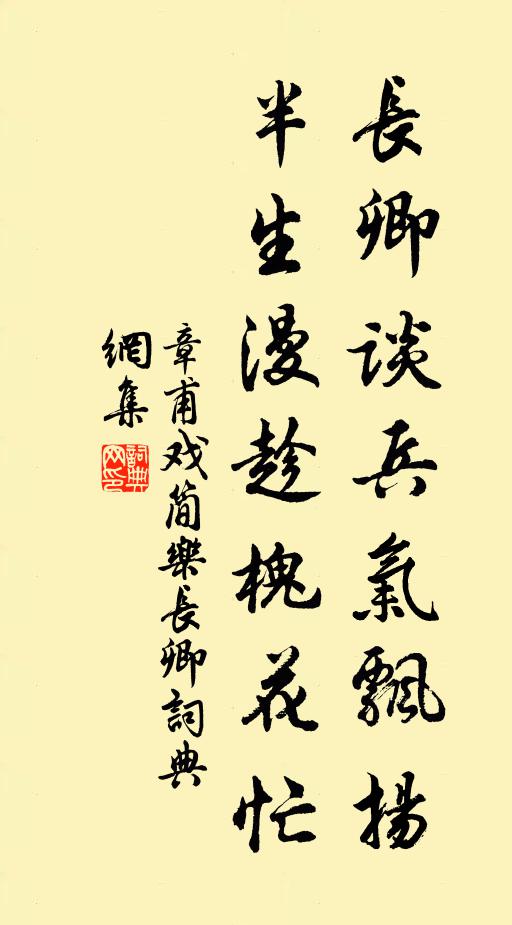 長卿談兵氣飄揚
半生漫趁槐花忙
章甫戏簡樂長卿詞典
網集
詞典網印